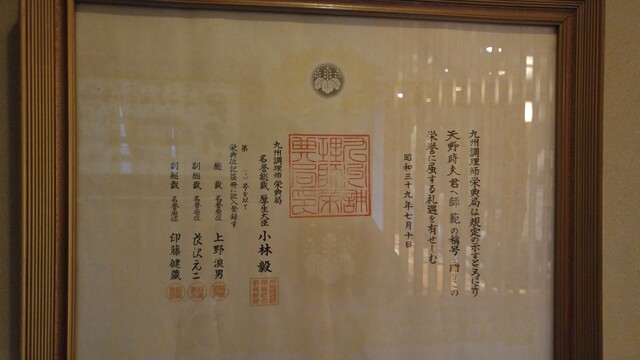 九州調理師栄典局は規定の示すところにより
天野時夫君へ師範の称号を贈りこの
栄誉に属する礼遇を有せしむ
昭和三十九年七月十日
九州調理師栄典局
名誉総裁 厚生大臣 小林 毅
第 号を以て
栄典位記簿冊に記入登録す
総裁 名誉 上野浪男
副総裁 名誉
副総裁 名誉 印藤健蔵